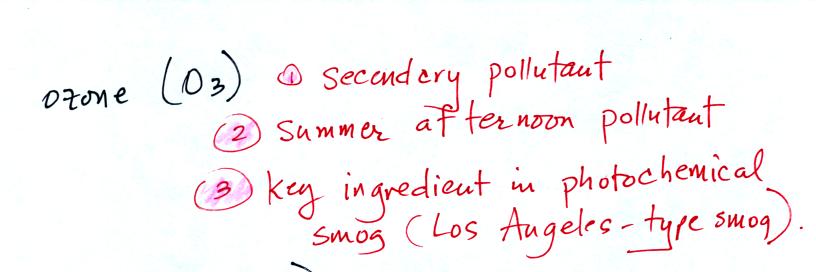 ozone (O3) ① Secondary pollutant
② Summer afternoon pollutant
③ Key ingredient in photochemical
smog (Los Angeles-type smog).